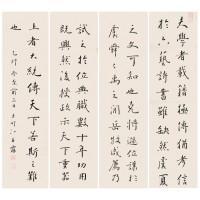 夫學者載籍極博猶考信
於六藝詩書雖缺然虞夏
之文可知也堯將遜位讓於
虞舜舜禹之間岳牧咸薦乃
試之於位典職數十年功用
既興然後授政示天下重器
王者大統傳天下若斯之難
也